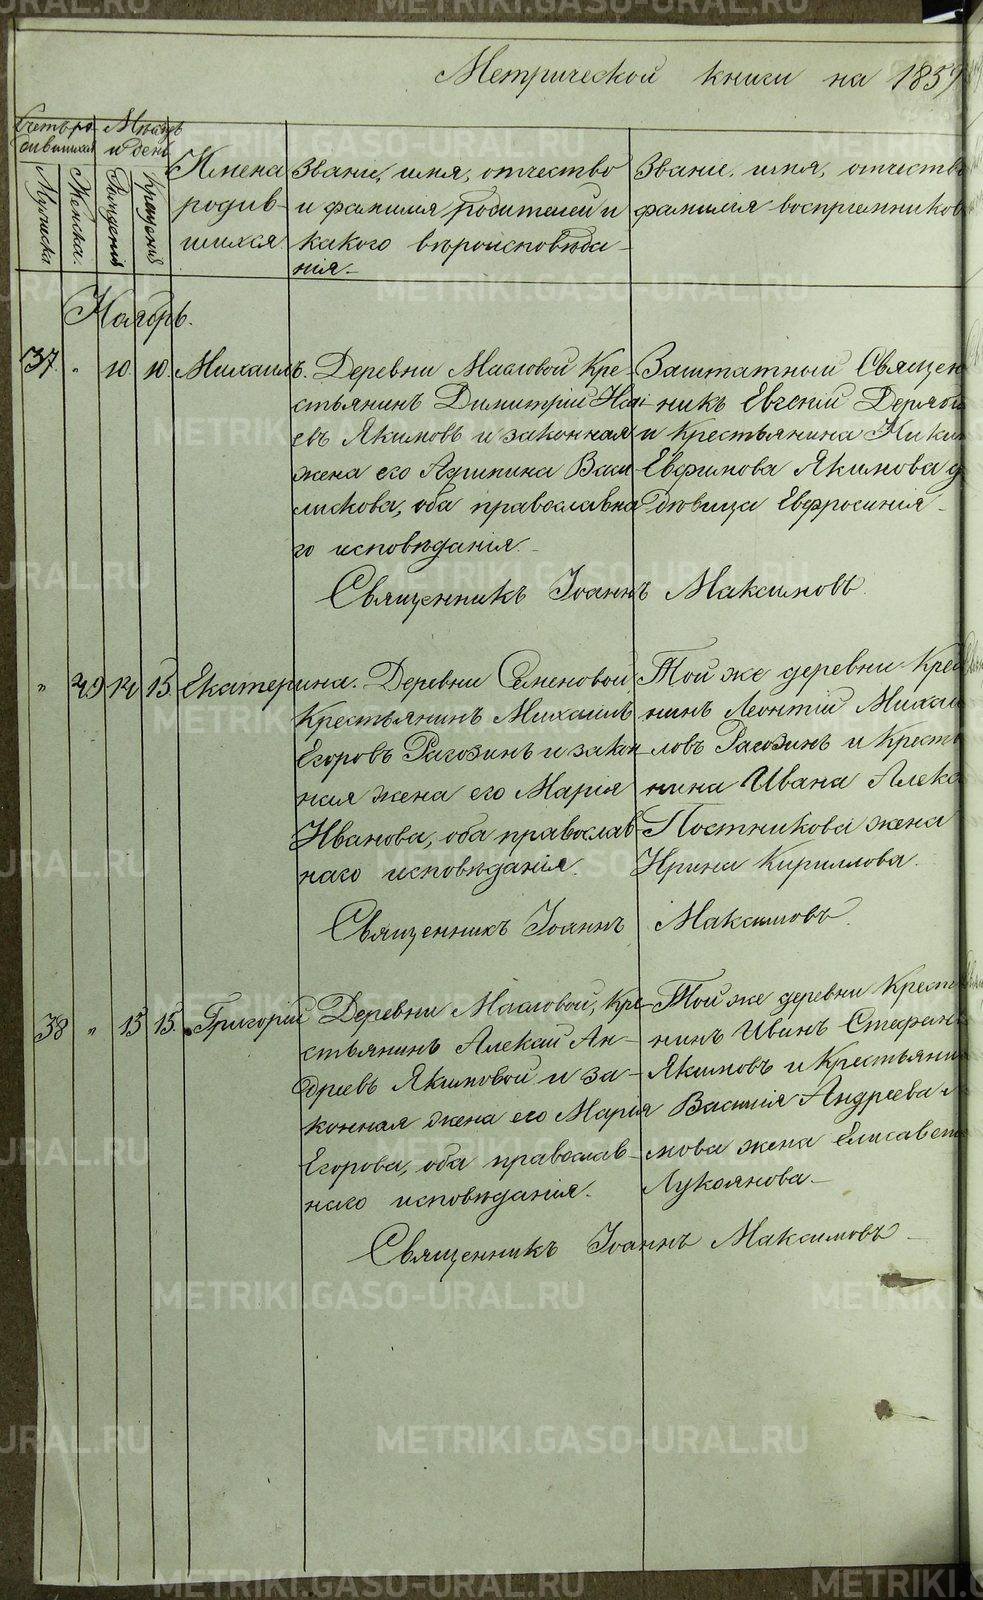 Метрической книги на 1859
Счетъ ро-
дившихся
Мѣсяцъ
и день
Мужска
Женска.
Рожденія
Крещенія
Имена
родив-
шихся.
Званіе, имя, отчество
и фамилія родителей и
какого вѣроисповѣда-
нія.-
Званіе, имя, отчество
фамилія воспріемников
Ноябрь.
37. " 10. 10. Михаилъ. Деревни Масловой Кре-
стьянинъ Димитрій
евъ Якимовъ и законная
жена его Агрипина Васи-
лискова, оба православна-
го исповѣданія.-
Заштатный Священ
никъ Евгеній Деряби
и Крестьянина Ники
Евфимова Якимова д
Дѣвица Евфросинія -
Священникъ Іоаннъ Максимовъ.
" 49 14 15. Екатерина. Деревни Семеновой,
Крестьянинъ Михаилъ
Егоровъ Рагозинъ и закон-
ная жена его Марія
Иванова, оба православ-
наго исповѣданія.
Той же деревни Крес
нинъ Леонтій Михаи
ловъ Рагозинъ и Кресть
нина Ивана Алекс
Постникова жена
Ирина Кириллова.
Священникъ Іоаннъ Максимовъ.
38 " 15 15. Григорій Деревни Масловой, Кре-
стьянинъ Алексѣй Ан-
дреевъ Якимовой и за-
конная жена его Марія
Егорова, оба православ-
наго исповѣданія.
Той же деревни Кресть
нинъ Иванъ Стефан
Якимовъ и Крестьяни
Василія Андреева Я
мова жена Елисавет
Лукоянова.-
Священникъ Іоаннъ Максимовъ -
METRIKI.GASO-URAL.RU